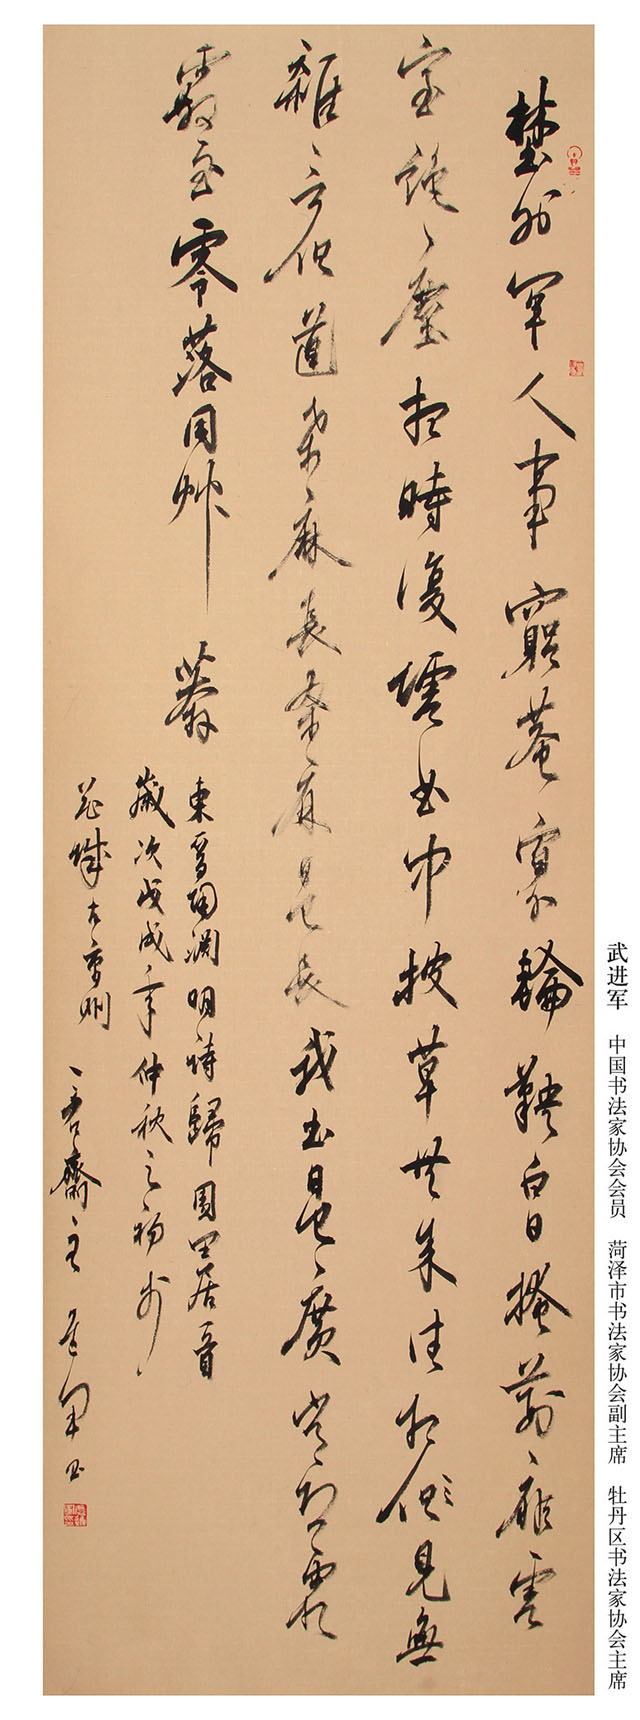 埜外罕人事窮巷寡輪鞅白日掩荊扉虛
室絕塵想時復墟曲中披草共來往相見無
雜言但道桑麻長桑麻日已長我土日已廣常恐霜
霰至零落同艸莽
東晉陶淵明詩歸園田居一首
歲次戊戌年仲秋之初於
花城古曹州 齋主
武进军 中国书法家协会会员 菏泽市书法家协会副主席 牡丹区书法家协会主席